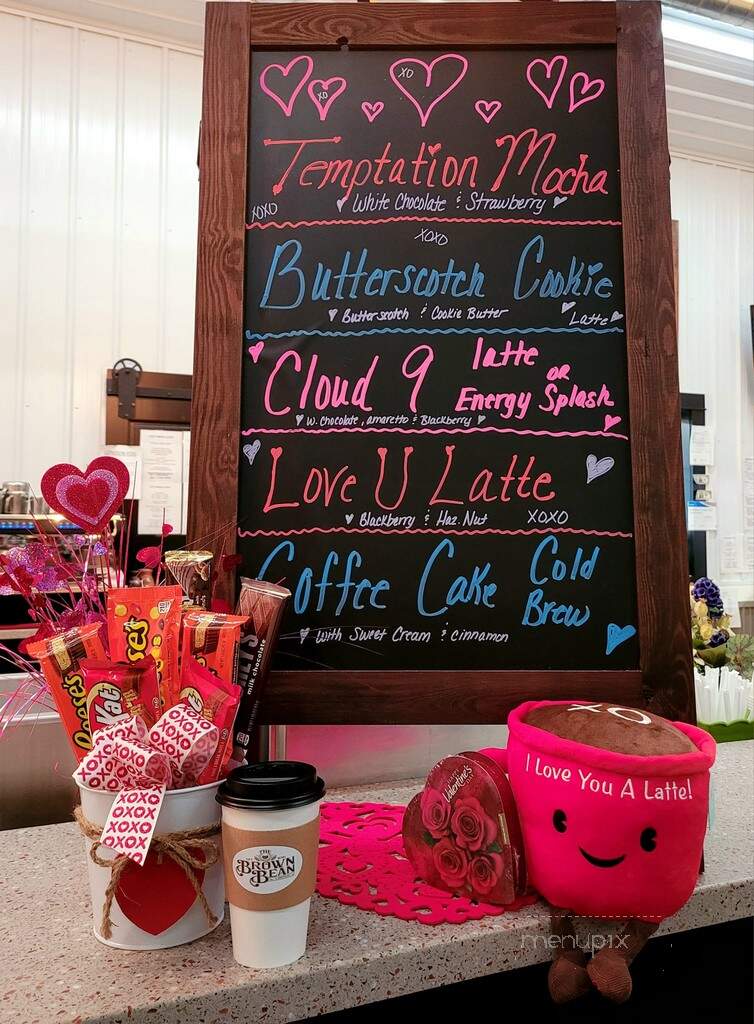 XO
XO
Temptation Mocha
White Chocolate & Strawberry
XOXO
XOXO
Butterscotch Cookie
Butterscotch & Cookie Butter
Latte
Cloud 9 latte
OR
Energy Splash
W. Chocolate, amaretto & Blackberry
Love U Latte
Blackberry & Haz. Nut XOXO
Coffee Cake Cold
Brew
With Sweet Cream & cinnamon
Reese's
Reese's
Kat
milk chocolate
XOXO
XOXO
XOXO
XOXO
THE
BROWN
BEAN
Valentine's
XO
I Love You A Latte!
menupix